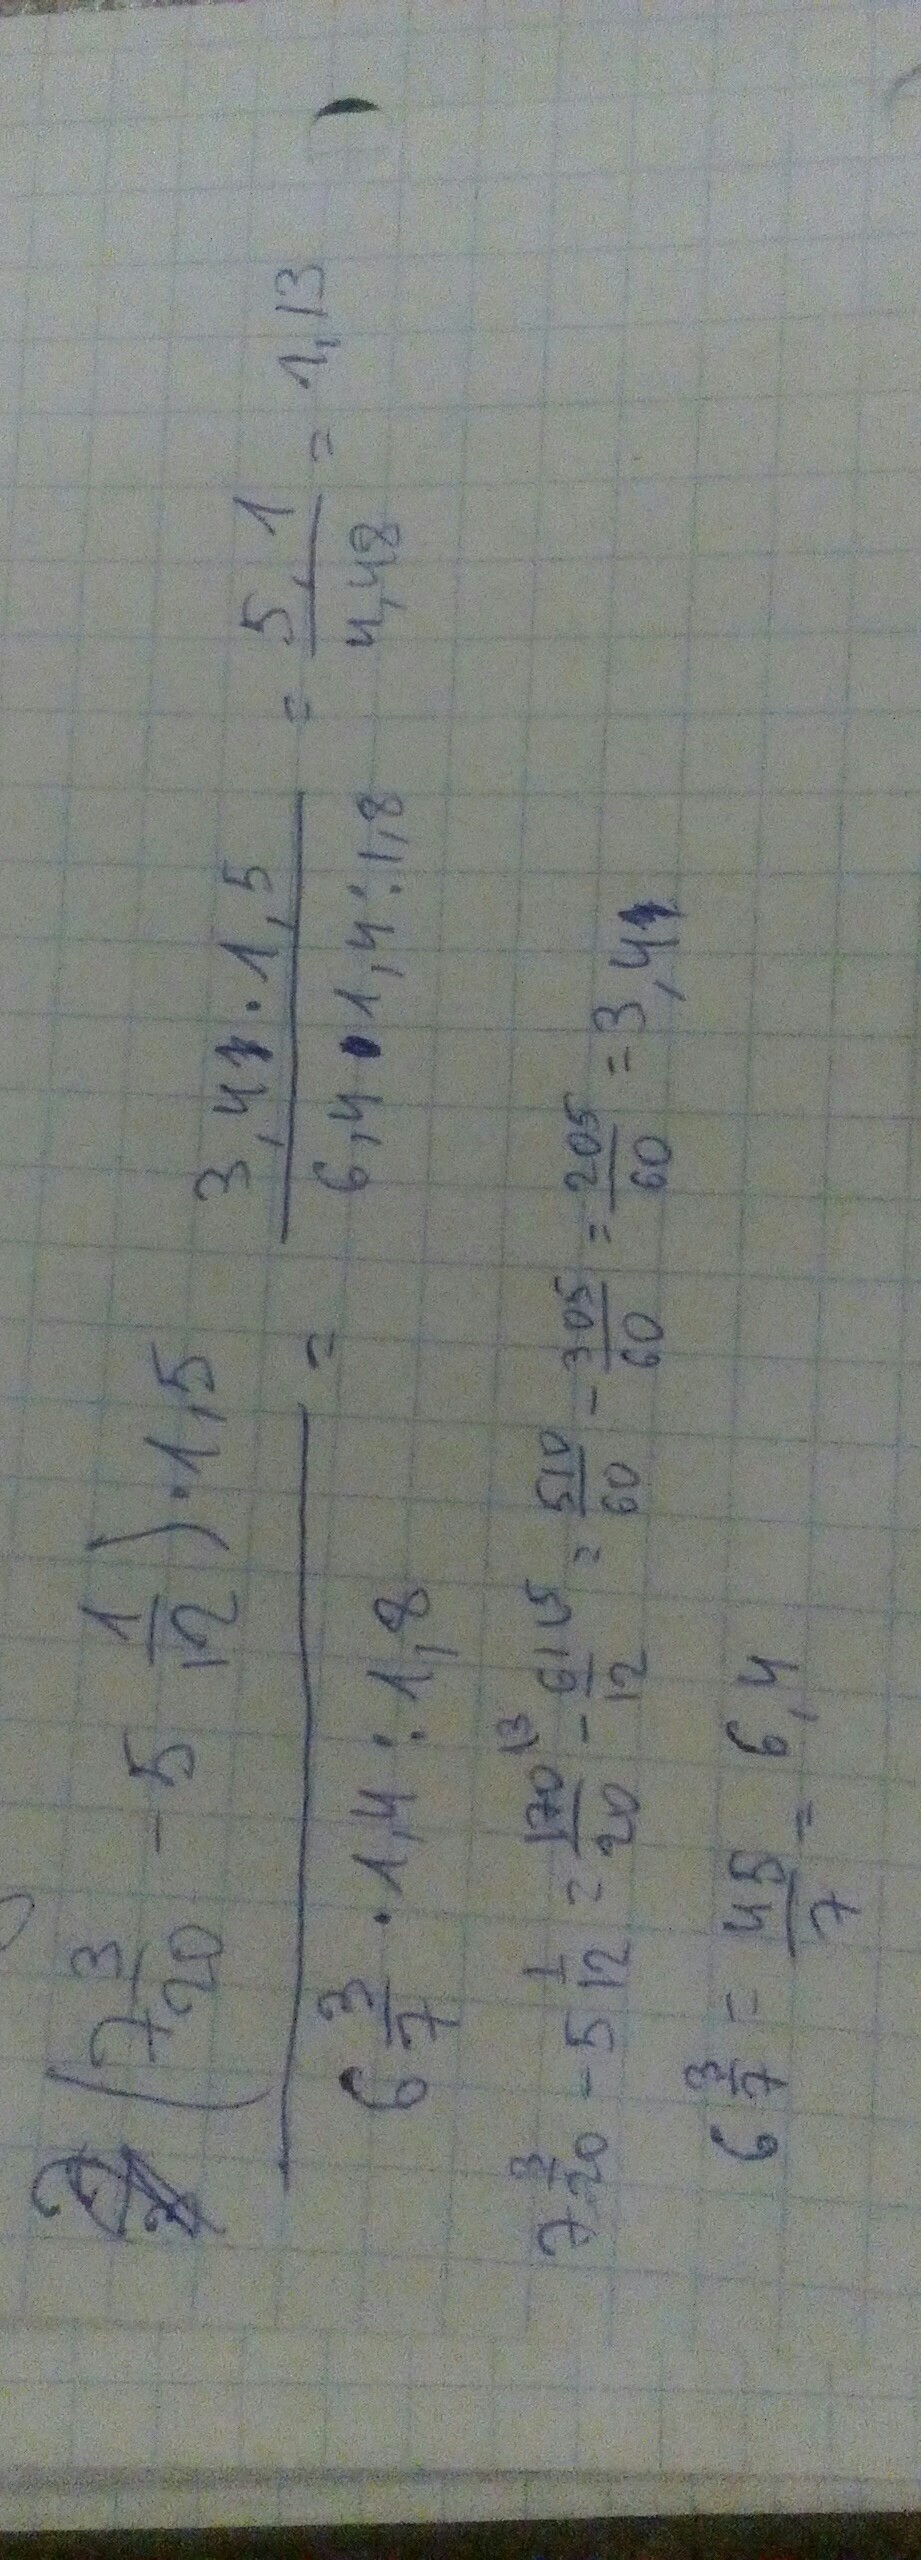 (7 3/20 - 5 1/12) · 1,5 / 6 3/7 · 1,4 : 1,8 = 3,4 · 1,5 / 6,4 · 1,4 : 1,8 = 5,1 / 4,48 = 1,13
7 3/20 - 5 1/12 = 170/20 13 - 61/12 5 = 510/60 - 305/60 = 205/60 = 3,4
6 3/7 = 45/7 = 6,4